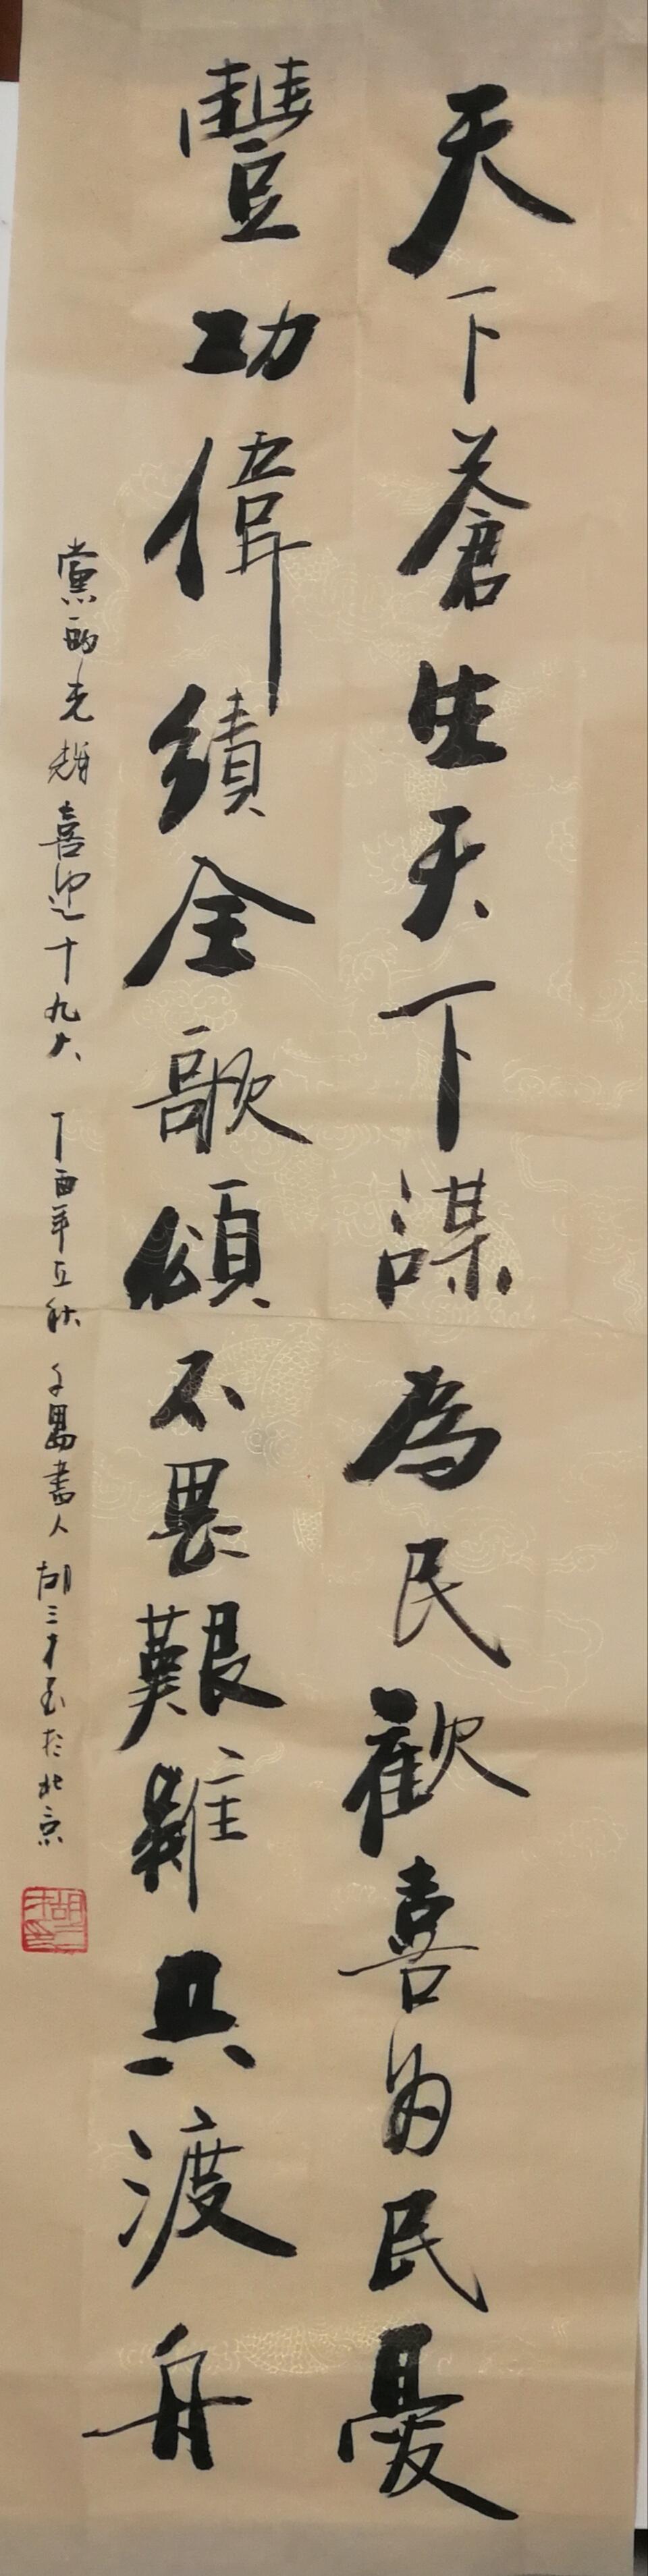 天下蒼生天下謀為民歡喜为民憂
豐功偉績全歌頌不畏艱難共渡舟
黨的光輝喜迎十九大 丁酉年立秋 書人胡三才书於北京
胡三才印